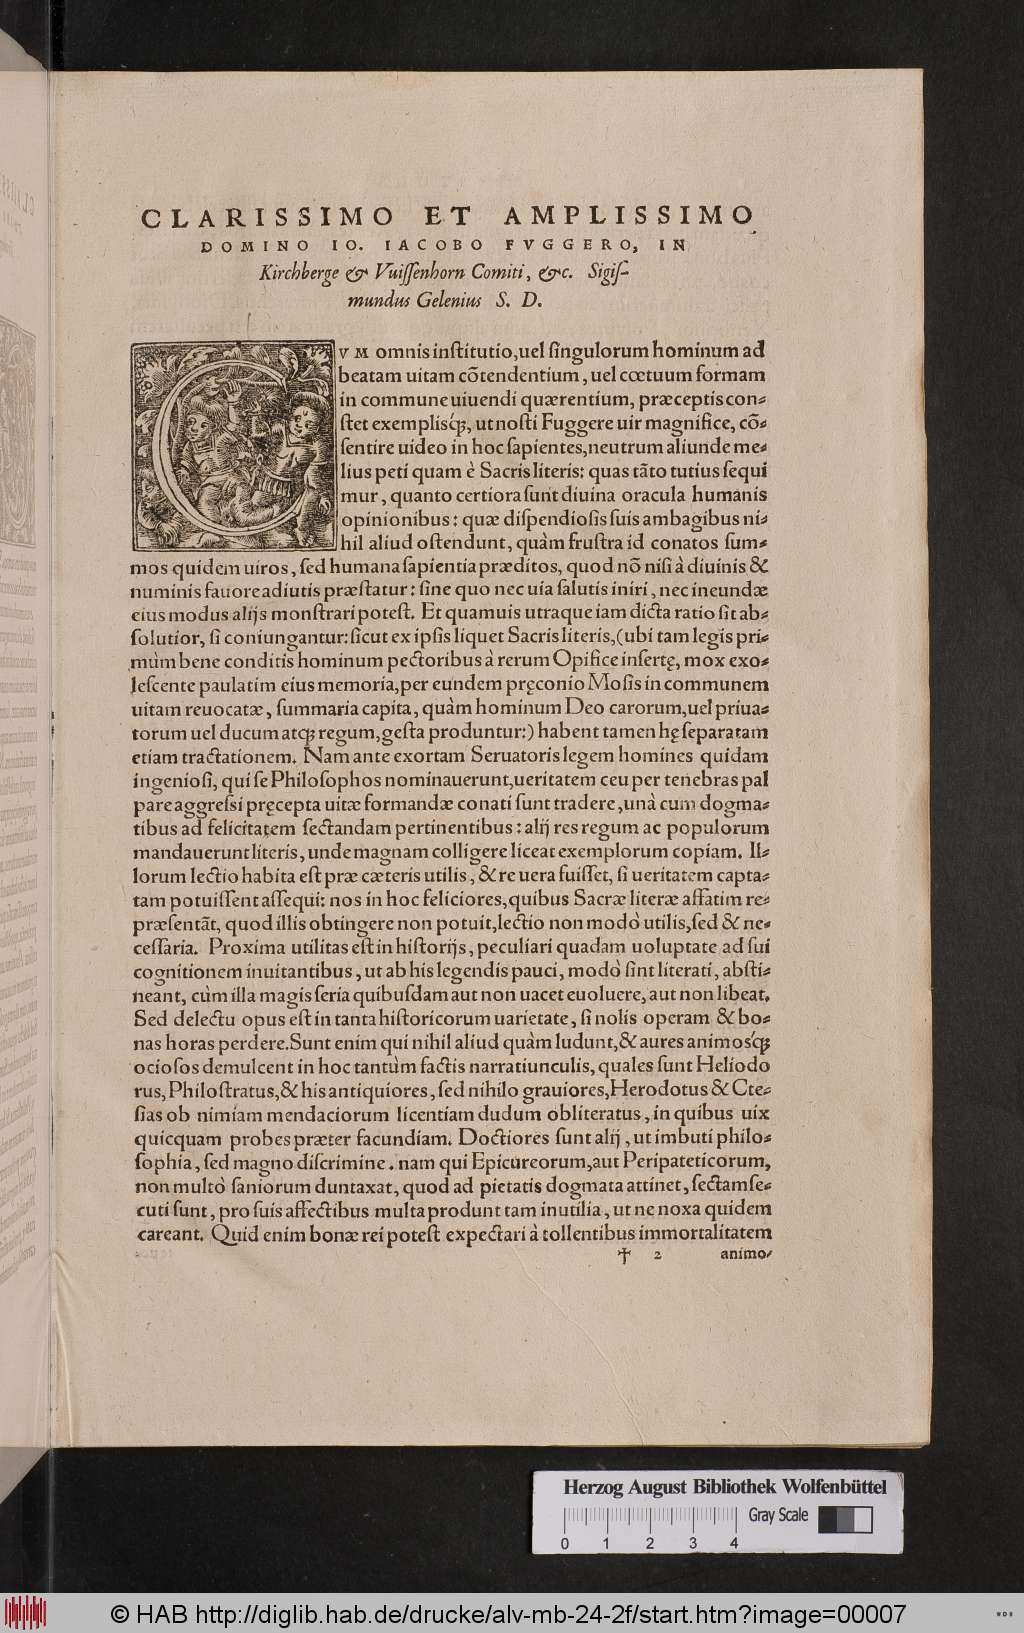 CLARISSIMO ET AMPLISSIMO
DOMINO IO. IACOBO FVGGERO, IN
Kirchberge & Vuiſſenhorn Comiti, &c. Sigiſ-
mundus Gelenius S. D.
CVM omnis inſtitutio, uel ſingulorum hominum ad
beatam uitam cõtendentium, uel cœtuum formam
in commune uiuendi quærentium, præceptis con-
ſtet exemplisq́;, ut noſti Fuggere uir magnifice, cõ-
ſentire uideo in hoc ſapientes, neutrum aliunde me-
lius peti quam è Sacris literis: quas tãto tutius ſequi
mur, quanto certiora ſunt diuina oracula humanis
opinionibus: quæ diſpendioſis ſuis ambagibus ni-
hil aliud oſtendunt, quàm fruſtra id conatos ſum-
mos quidem uiros, ſed humana ſapientia præditos, quod nõ niſi à diuinis &
numinis fauore adiutis præſtatur: ſine quo nec uia ſalutis iniri, nec ineundæ
eius modus alijs monſtrari poteſt. Et quamuis utraque iam dicta ratio ſit ab-
ſolutior, ſi coniungantur: ſicut ex ipſis liquet Sacris literis, (ubi tam legis pri-
mùm bene conditis hominum pectoribus à rerum Opifice inſertę, mox exo-
leſcente paulatim eius memoria, per eundem pręconio Moſis in communem
uitam reuocatæ, ſummaria capita, quàm hominum Deo carorum, uel priua-
torum uel ducum atq; regum, geſta produntur:) habent tamen hę ſeparatam
etiam tractationem. Nam ante exortam Seruatoris legem homines quidam
ingenioſi, qui ſe Philoſophos nominauerunt, ueritatem ceu per tenebras pal
pare aggreſsi pręcepta uitæ formandæ conati ſunt tradere, unà cum dogma-
tibus ad felicitatem ſectandam pertinentibus: alij res regum ac populorum
mandauerunt literis, unde magnam colligere liceat exemplorum copiam. Il-
lorum lectio habita eſt præ cæteris utilis, & re uera fuiſſet, ſi ueritatem capta-
tam potuiſſent aſſequi: nos in hoc feliciores, quibus Sacræ literæ affatim re-
præſentãt, quod illis obtingere non potuit, lectio non modò utilis, ſed & ne-
ceſſaria. Proxima utilitas eſt in hiſtorijs, peculiari quadam uoluptate ad ſui
cognitionem inuitantibus, ut ab his legendis pauci, modò ſint literati, abſti-
neant, cùm illa magis ſeria quibuſdam aut non uacet euoluere, aut non libeat.
Sed delectu opus eſt in tanta hiſtoricorum uarietate, ſi nolis operam & bo-
nas horas perdere. Sunt enim qui nihil aliud quàm ludunt, & aures animosq́;
ocioſos demulcent in hoc tantùm factis narratiunculis, quales ſunt Heliodo
rus, Philoſtratus, & his antiquiores, ſed nihilo grauiores, Herodotus & Cte-
ſias ob nimiam mendaciorum licentiam dudum obliteratus, in quibus uix
quicquam probes præter facundiam. Doctiores ſunt alij, ut imbuti philo-
ſophia, ſed magno diſcrimine. nam qui Epicureorum, aut Peripateticorum,
non multò ſaniorum duntaxat, quod ad pietatis dogmata attinet, ſectam ſe-
cuti ſunt, pro ſuis affectibus multa produnt tam inutilia, ut ne noxa quidem
careant. Quid enim bonæ rei poteſt expectari à tollentibus immortalitatem
† 2 animo-
Herzog August Bibliothek Wolfenbüttel
Gray Scale
0 1 2 3 4
© HAB http://diglib.hab.de/drucke/alv-mb-24-2f/start.htm?image=00007